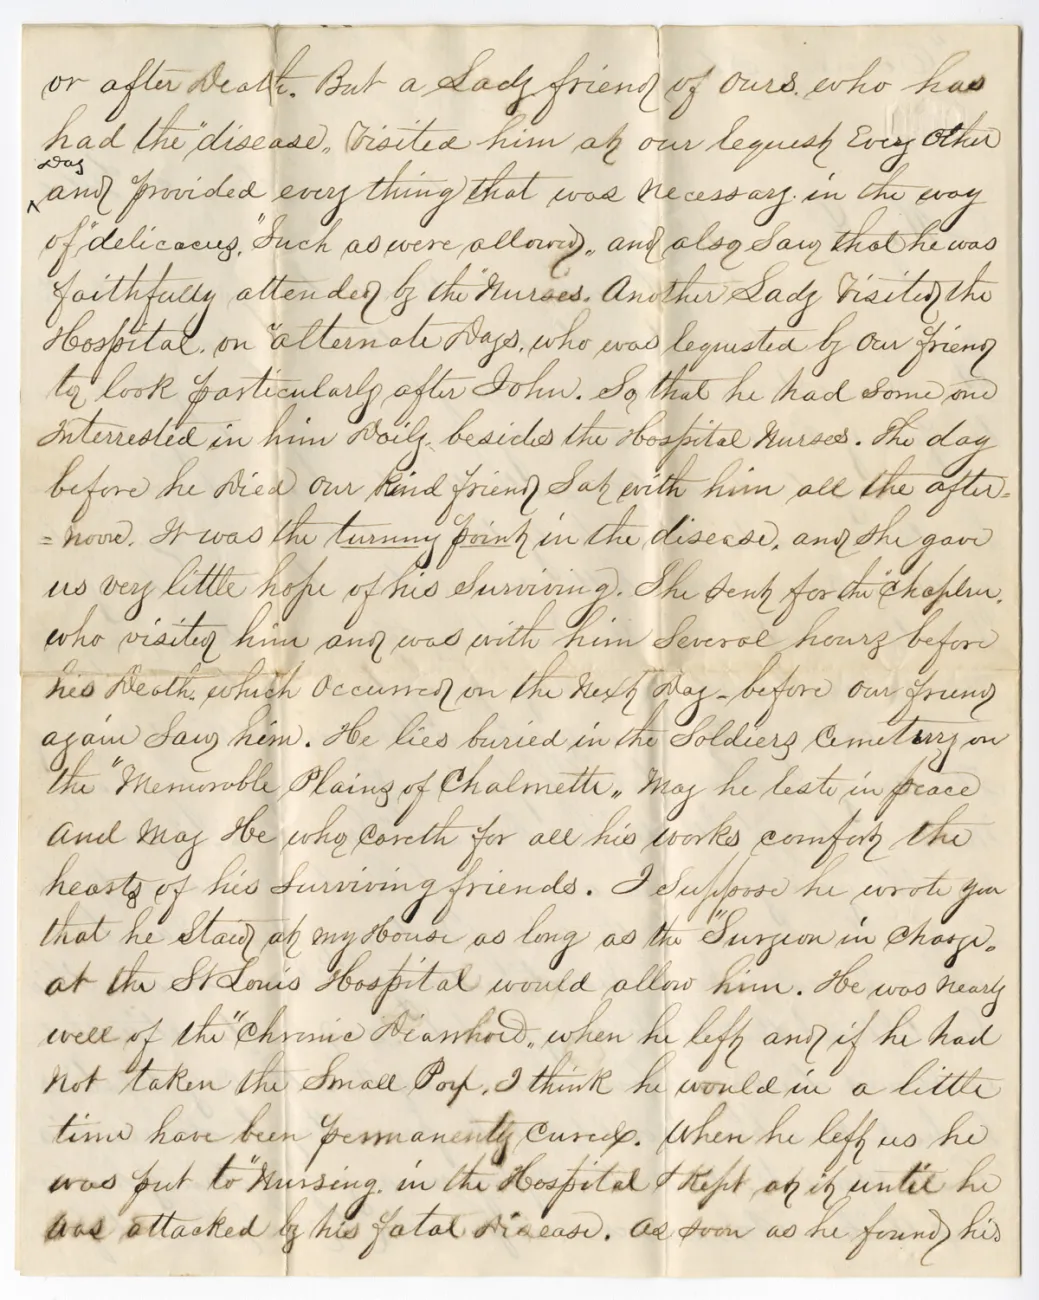 or after Death. But a Lady friend of ours. who has
had the "disease" Visited him at our request Every Other
Day
^ and provided every thing that was necessary in the way
of "delicacies." Such as were allowed, and also Saw that he was
faithfully attended by the "Nurses. Another Lady Visited the
Hospital. on "alternate Days. who was requested by our friend
to look particularly after John. So that he had some one
Interrested in him Daily besides the Hospital Nurses. The day
before he Died our kind friend Sat with him all the after=
=noon. It was the turning point in the disease. and She gave
us very little hope of his Surviving. She sent for the "Chaplin.
who visited him and was with him Several hours before
his Death. which occurred on the Next Day - before our friend
again Saw him. He lies buried in the Soldiers Cemetery on
the "Memorable Plains of Chalmette" May he reste in peace
And May He who Careth for all his works comfort the
hearts of his surviving friends. I Suppose he wrote you
that he Staid at my House as long as the "Surgeon in Charge"
at the St Louis Hospital would allow him. He was nearly
well of the "Chronic Diarrhoea" when he left and if he had
Not taken the Small Pox. I think he would in a little
time have been permanently cured. When he left us he
was put to "Nursing. in the Hospital & Kept at it until he
was attacked by his fatal Disease. As soon as he found his